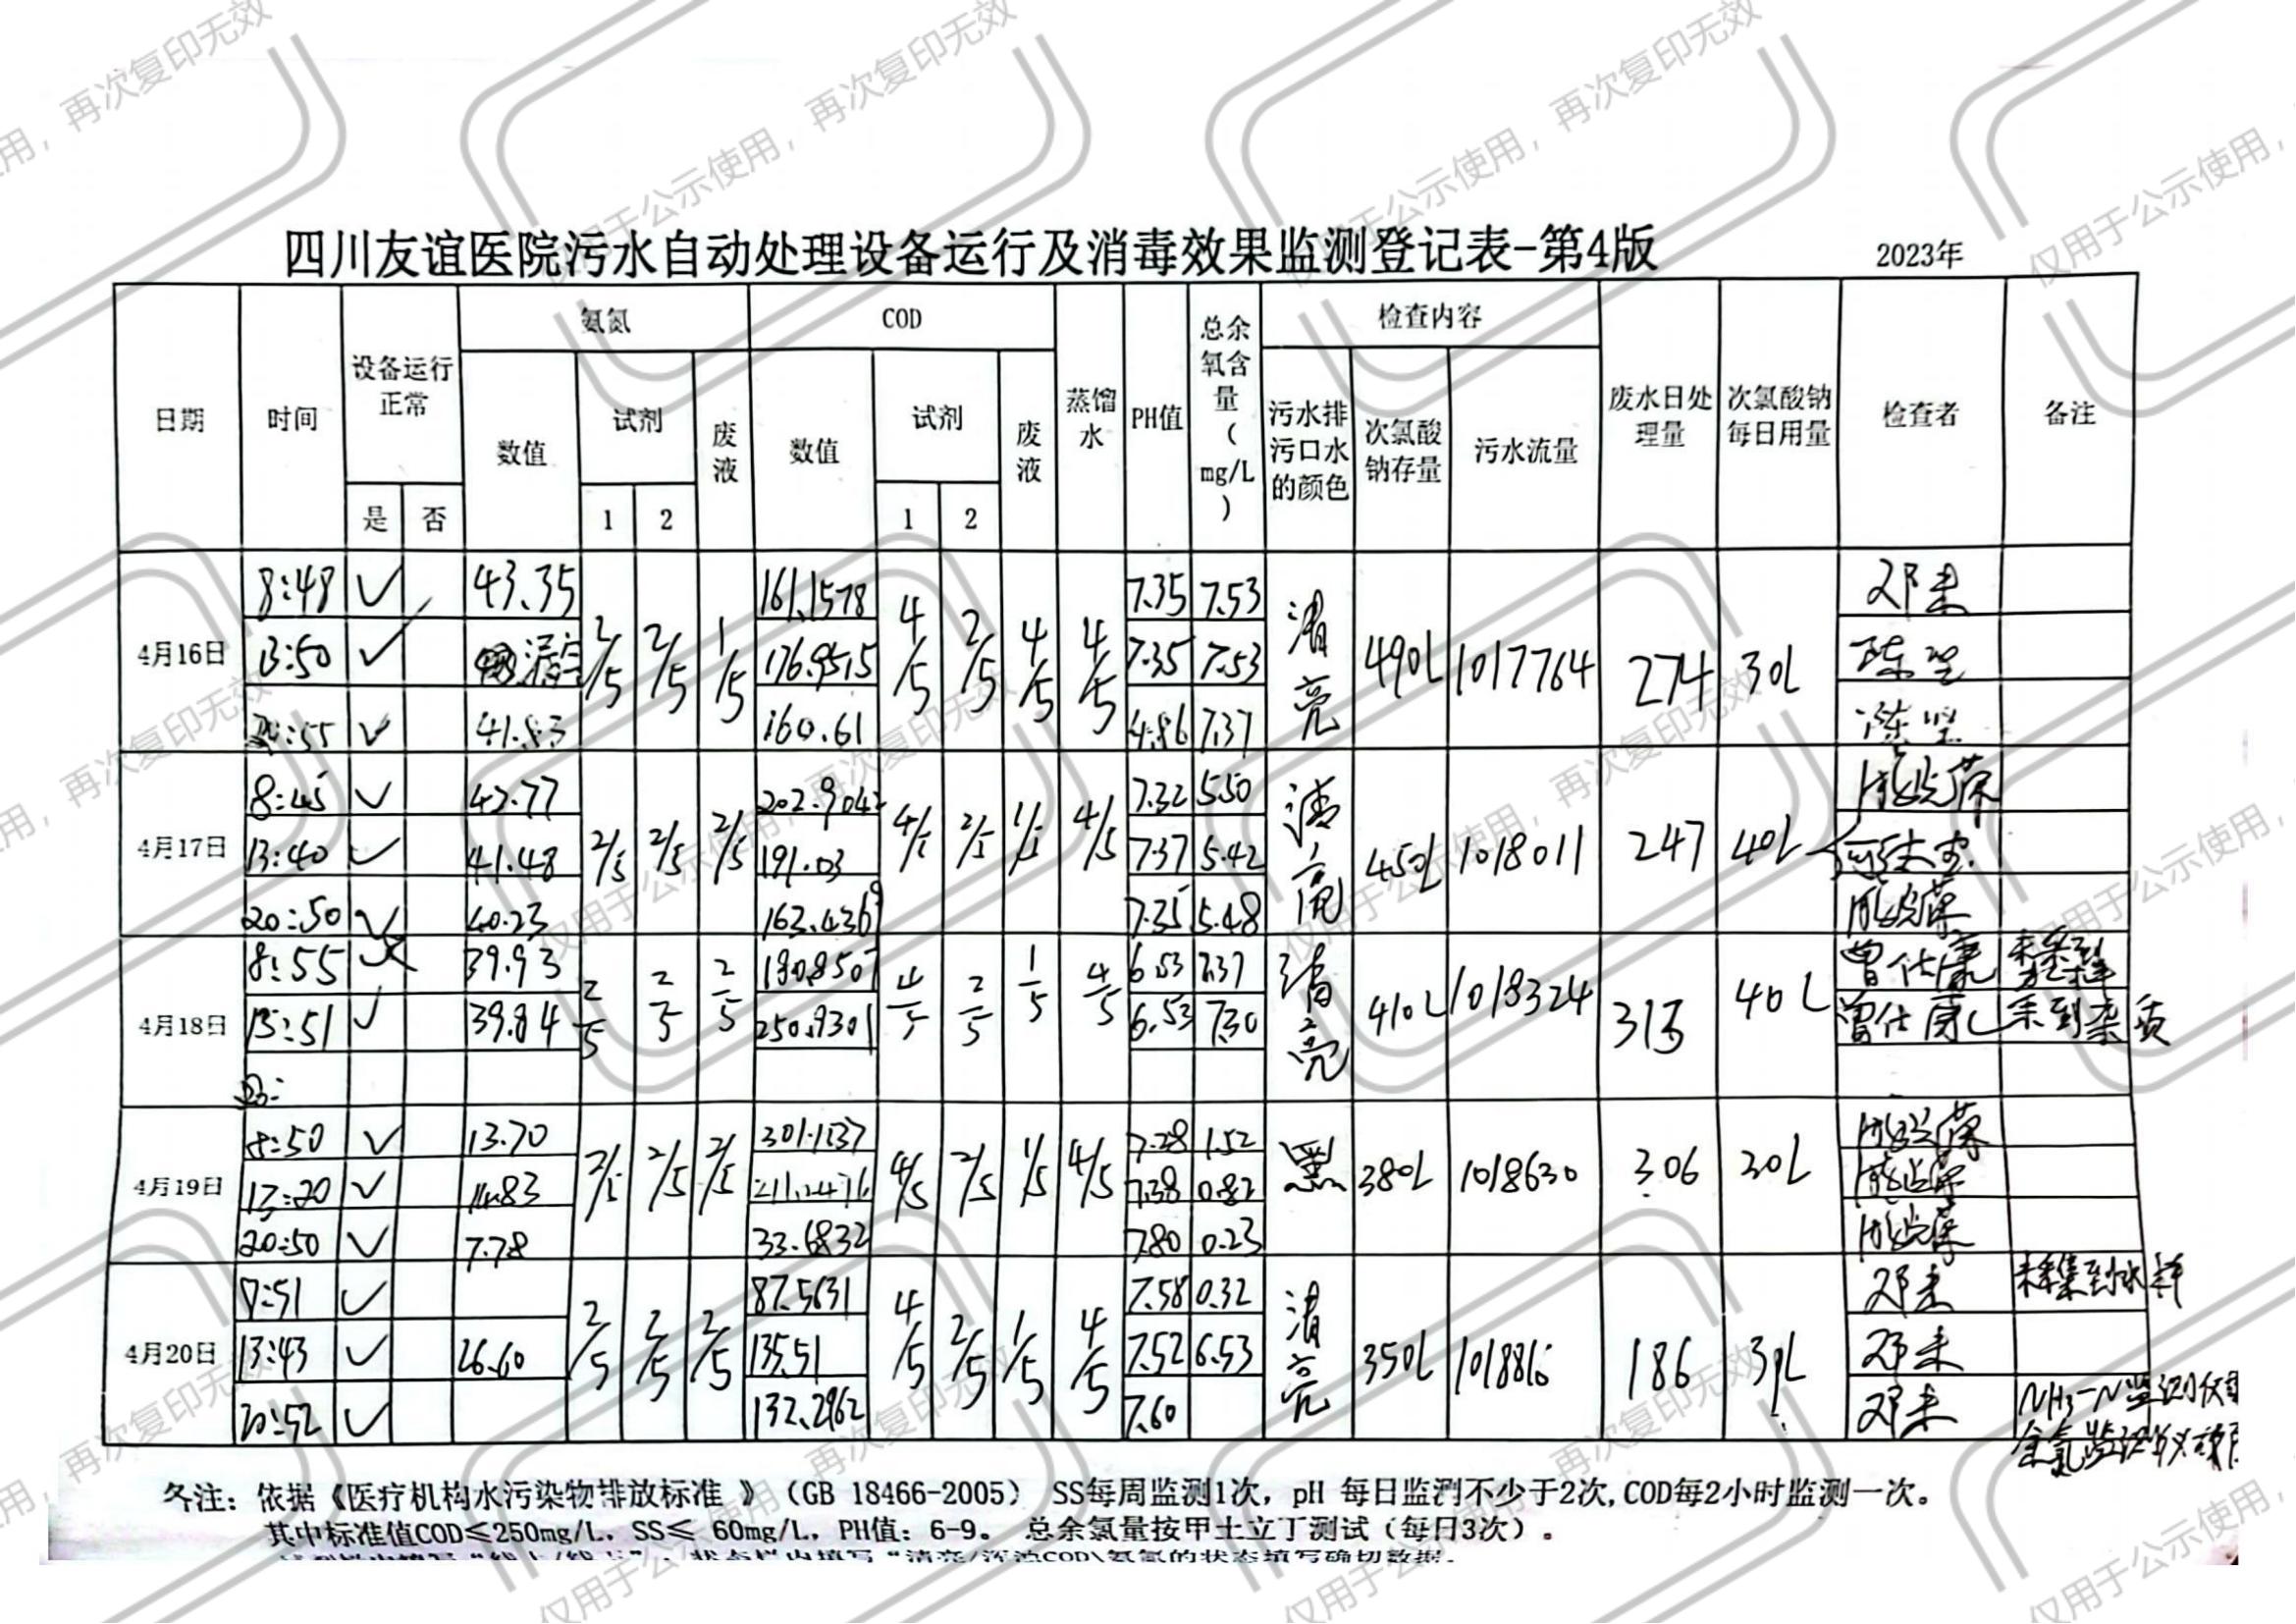 四川友谊医院污水自动处理设备运行及消毒效果监测登记表-第4版 2023年
日期 时间 设备运行正常 氨氮 COD 蒸馏水 PH值 总余氧含量(mg/L) 检查内容 废水日处理量 次氯酸钠每日用量 检查者 备注
是 否 数值 试剂 废液 数值 试剂 废液 污水排污口水的颜色 次氯酸钠存量 污水流量
1 2 1 2
4月16日 2/5 2/5 1/5 4/5 2/5 4/5 4/5 清亮 490L 1017764 274 30L
8:48 ✓ 43.35 161.1578 7.35 7.53 邓未
13:50 ✓ 176.9515 7.35 7.53
✓ 41.83 160.61 7.37
4月17日 2/5 2/5 2/5 4/5 2/5 1/5 4/5 清亮 450L 1018011 247 40L
8:45 ✓ 42.77 202.9042 7.32 5.50
13:40 ✓ 41.48 191.03 7.37 5.42
20:50 ✓ 40.23 163.4369 7.35 5.48
4月18日 2/5 2/5 2/5 4/5 2/5 1/5 4/5 清亮 410L 1018324 313 40L
8:55 39.93 6.53 7.37 曾仕康
13:51 ✓ 39.84 250.9301 6.53 7.30 曾仕康
4月19日 2/5 2/5 2/5 4/5 2/5 1/5 4/5 黑 380L 1018630 306 30L
8:50 ✓ 13.70 301.1537 7.28 1.52
13:20 ✓ 211.2476 7.38 0.82
20:50 ✓ 7.78 33.6832 7.80 0.23
4月20日 2/5 2/5 2/5 4/5 2/5 1/5 4/5 清亮 350L 1018816 186
✓ 87.5631 7.58 0.32 邓未 未采集到水样
13:43 ✓ 26.60 135.51 7.52 6.53 邓未
20:52 ✓ 132.2962 7.60 邓未 NH3-N监测仪
余氯监测仪故障
备注：依据《医疗机构水污染物排放标准 》（GB 18466-2005） SS每周监测1次，pH 每日监测不少于2次,COD每2小时监测一次。
其中标准值COD≤250mg/L，SS≤ 60mg/L，PH值：6-9。 总余氯量按甲土立丁测试（每日3次）。
仅用于公示使用，再次复印无效